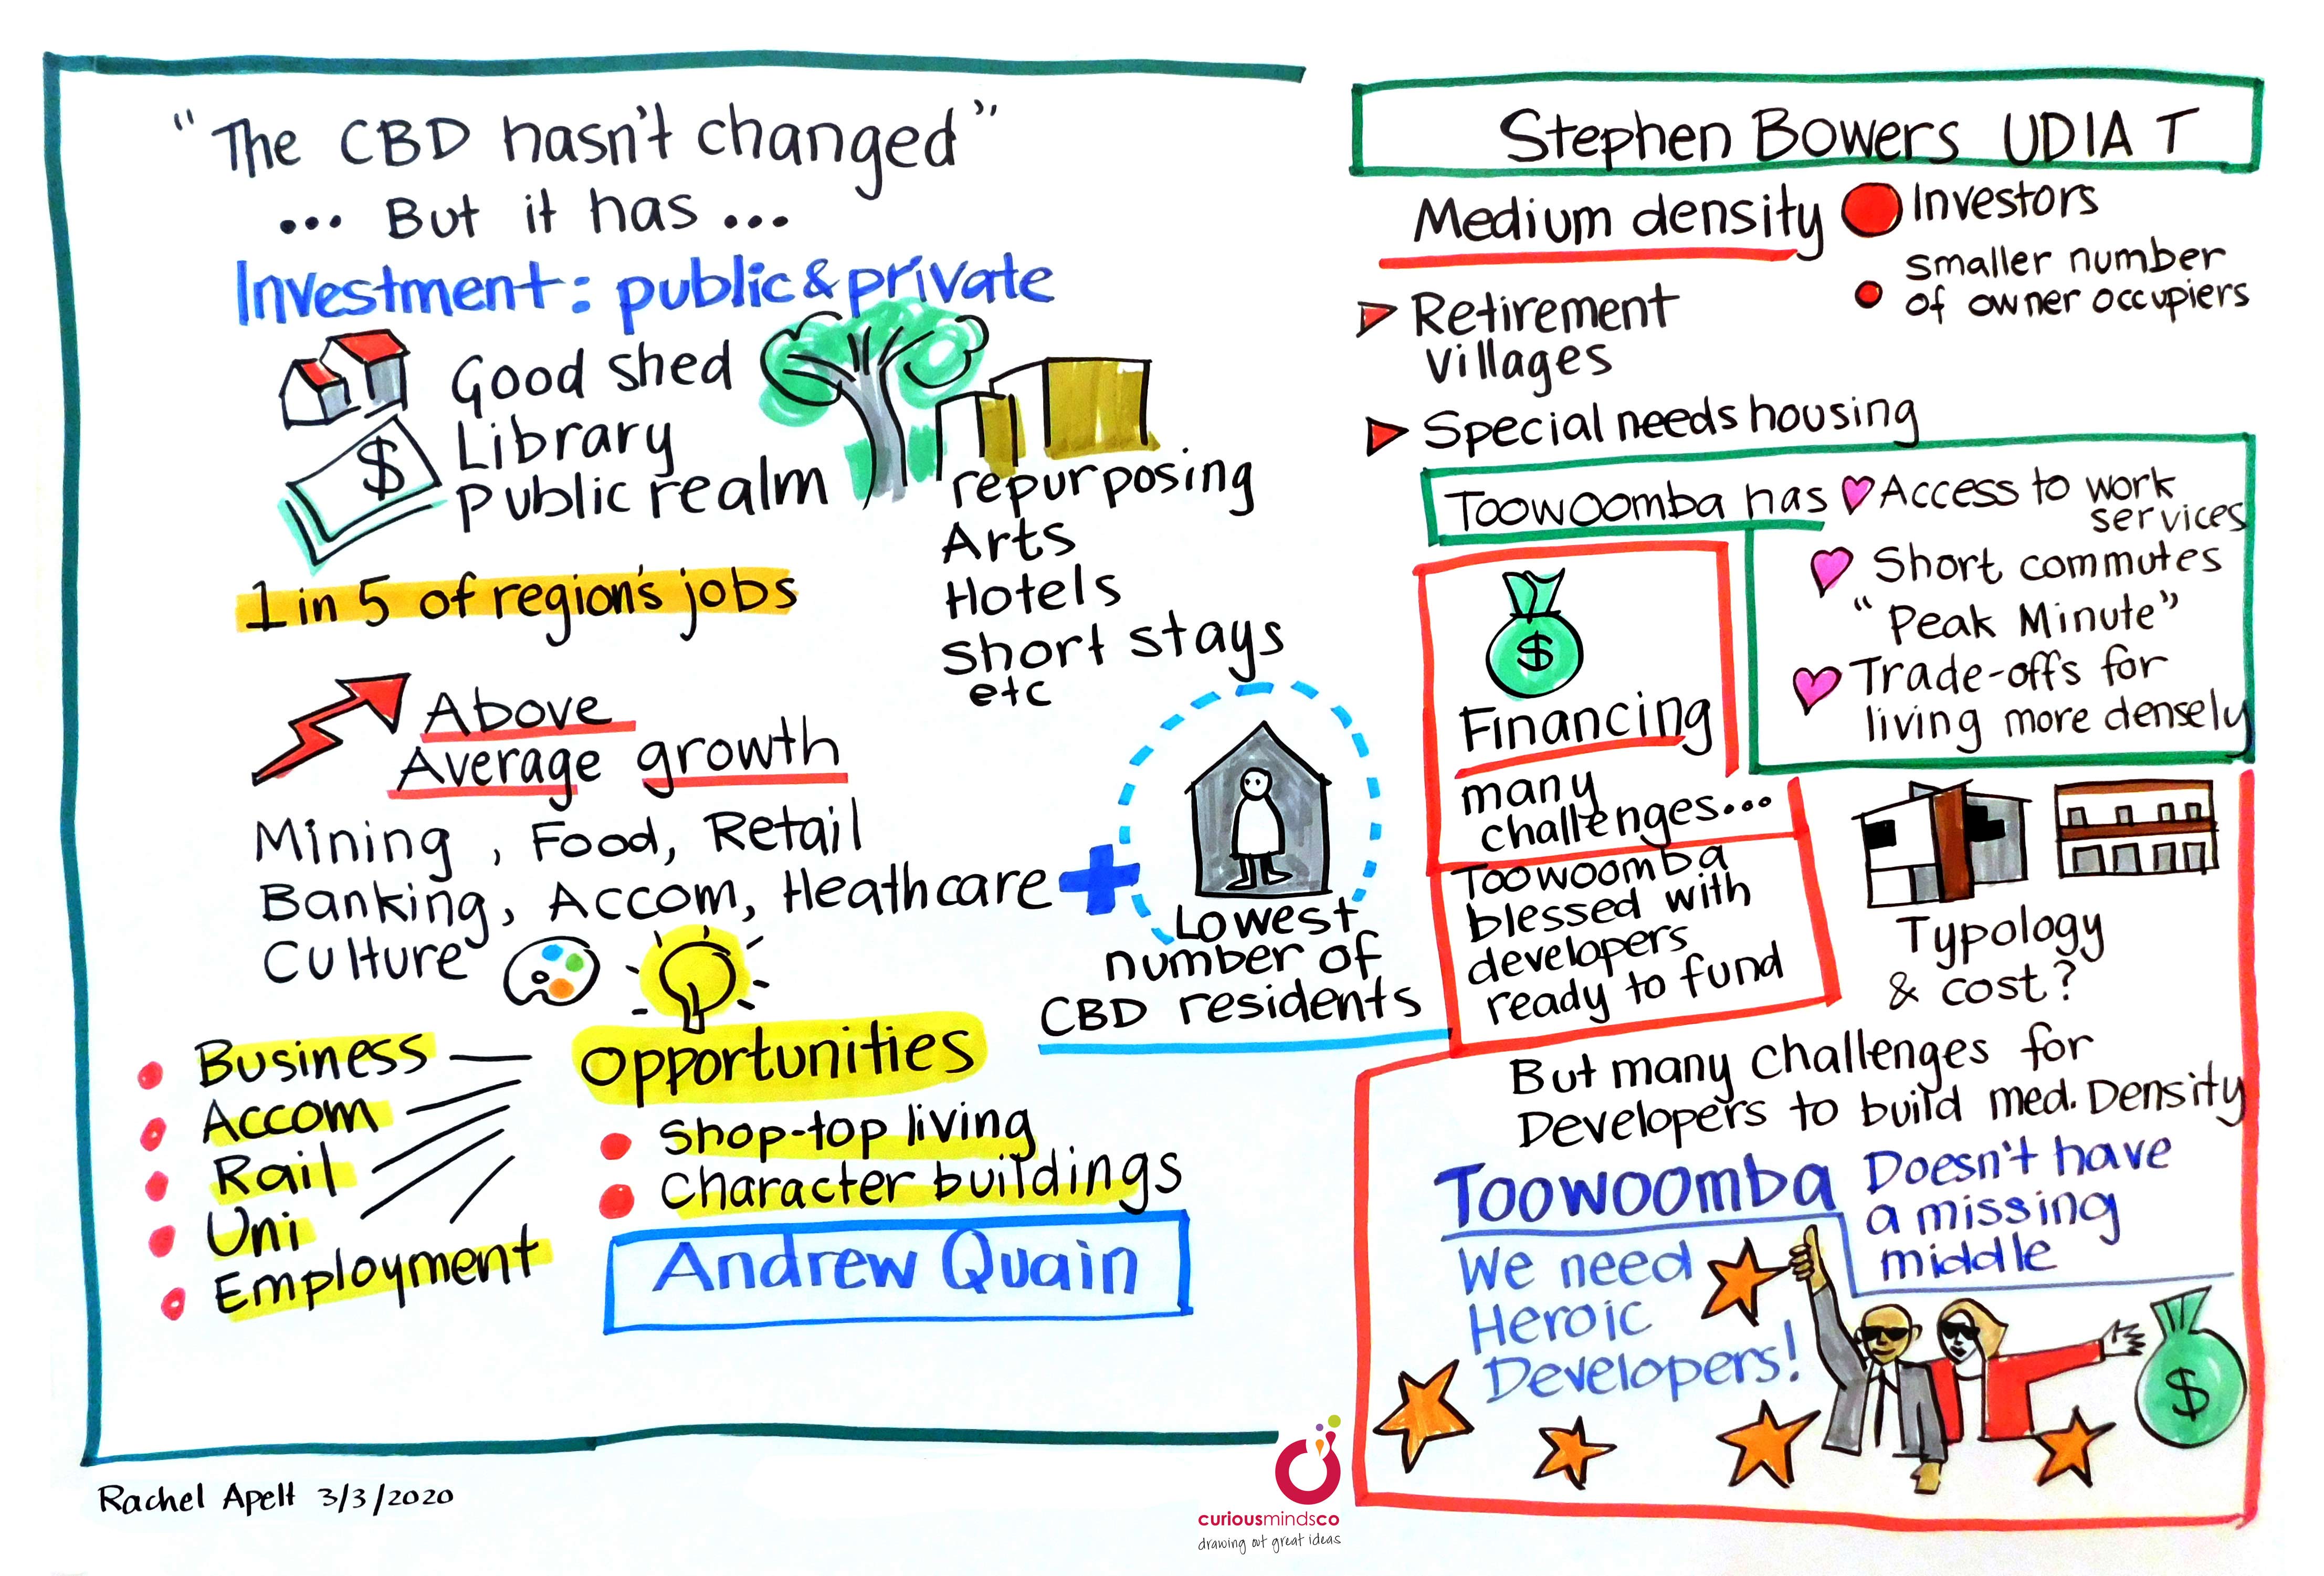 "The CBD hasn't changed"
... But it has ...
Investment: public & private
Good shed
Library
Public realm
repurposing
Arts
Hotels
Short stays
etc
1 in 5 of region's jobs
Above
Average growth
Mining, Food, Retail
Banking, Accom, Heathcare
Culture
+
Lowest
number of
CBD residents
Business
Accom
Rail
Uni
Employment
Opportunities
Shop-top living
Character buildings
Andrew Quain
Rachel Apelt 3/3/2020
curiousmindsco
drawing out great ideas
Stephen Bowers UDIA T
Medium density
Investors
smaller number
of owner occupiers
Retirement
Villages
Special needs housing
Toowoomba has
Access to work
services
Short commutes
"Peak Minute"
Trade-offs for
living more densely
$
$
Financing
many
challenges...
Toowoomba
blessed with
developers
ready to fund
Typology
& cost?
But many challenges for
Developers to build med. Density
Toowoomba Doesn't have
a missing
middle
We need
Heroic
Developers!
$